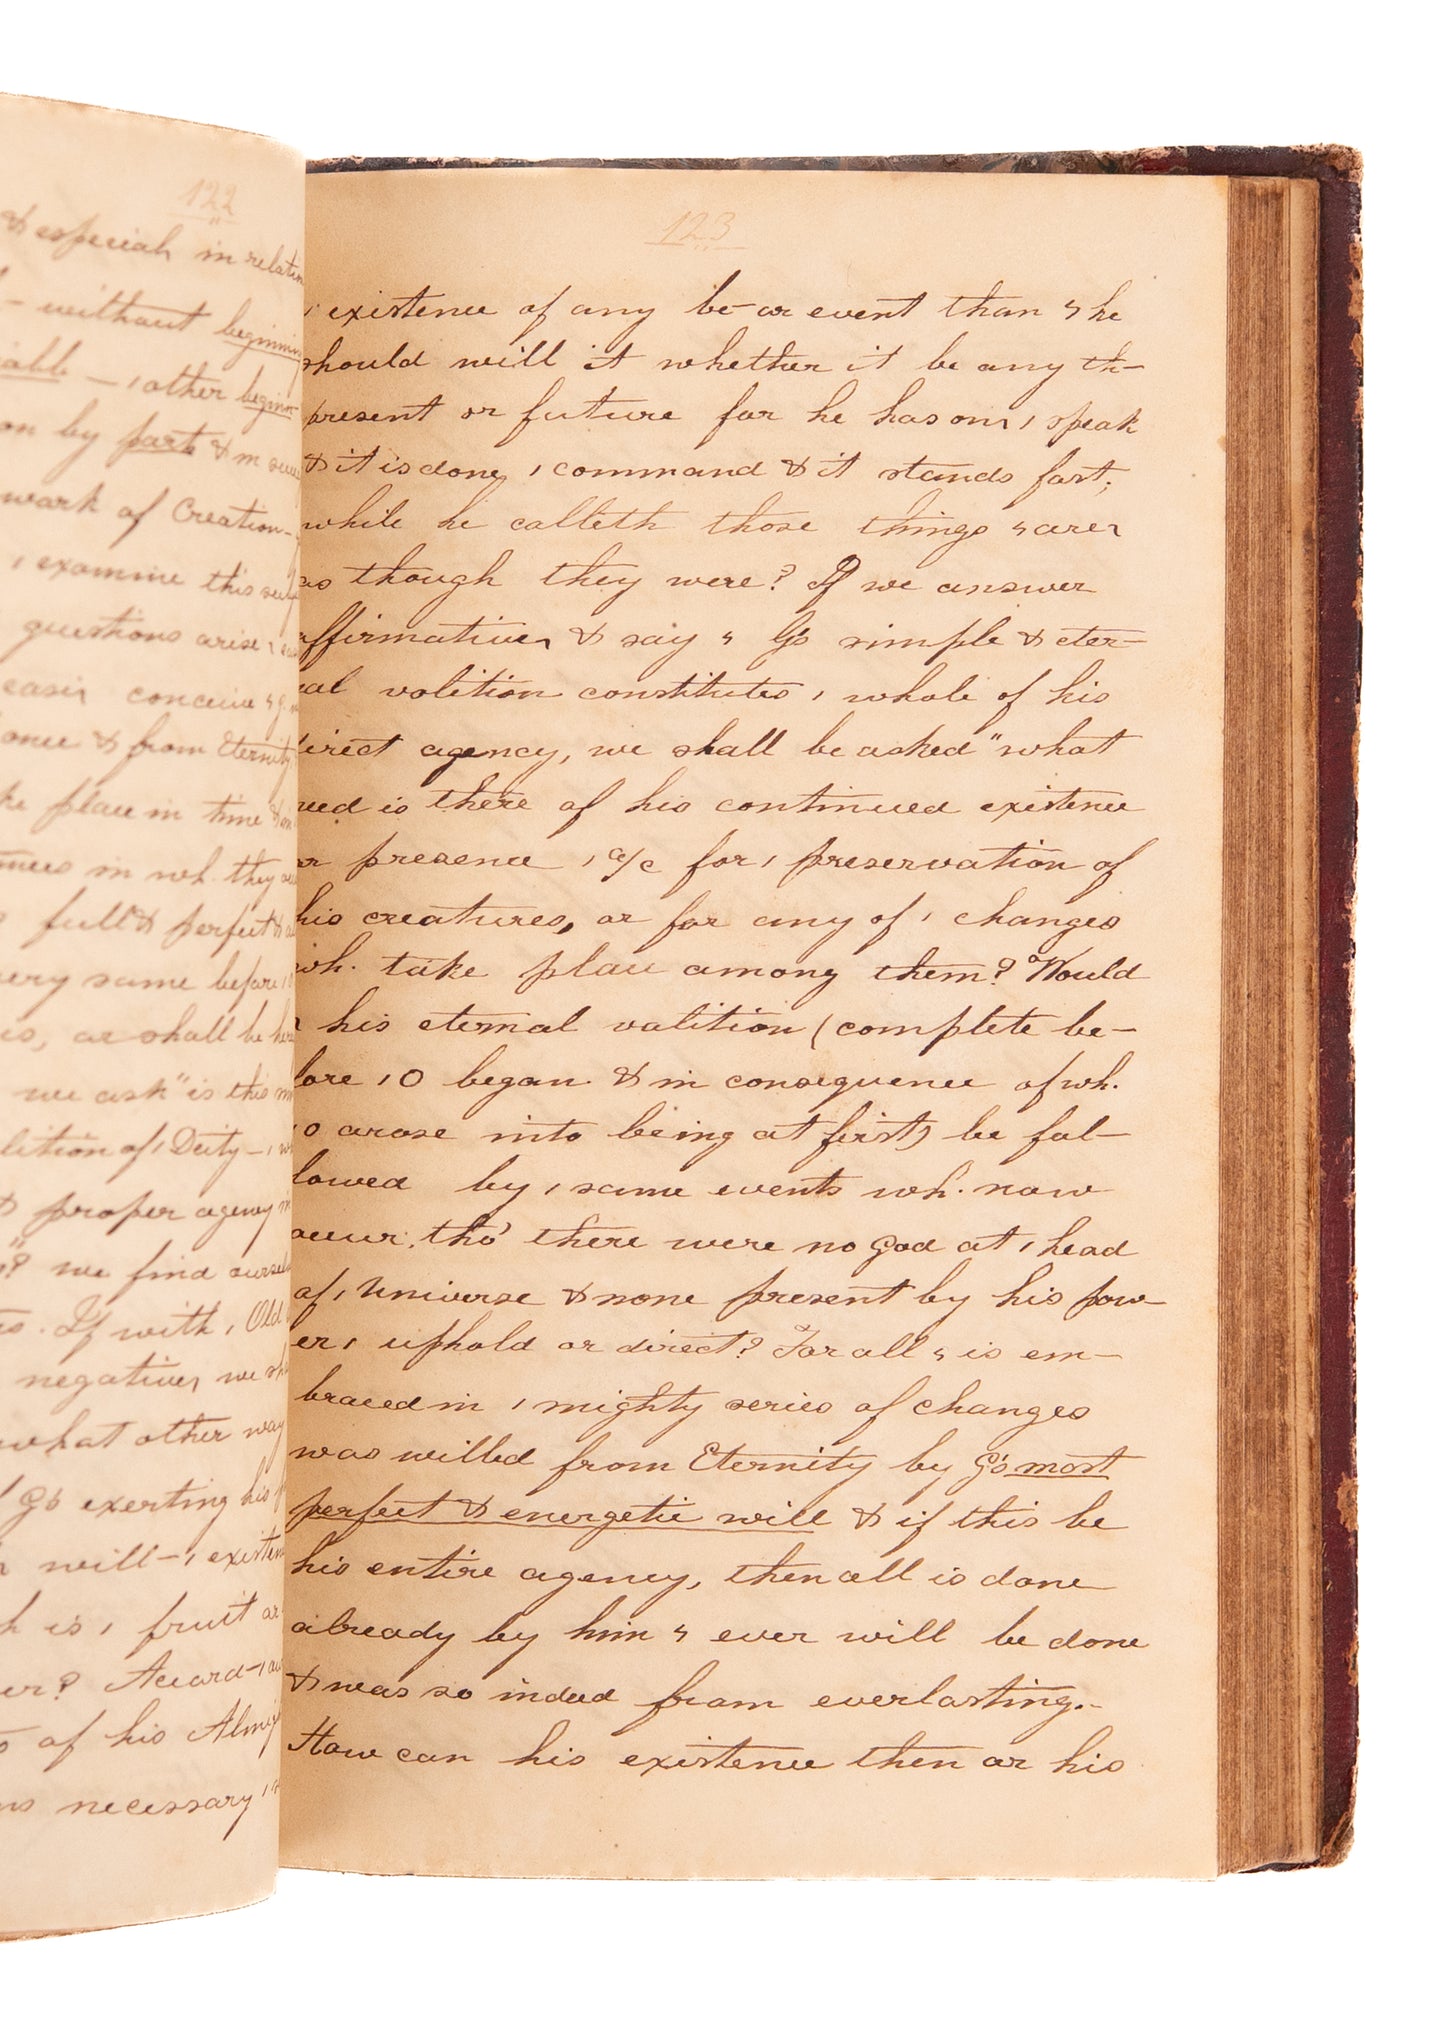 122
& especial, in relatin
- without beginnin
iable — , other beginn
on by parts & in succ
work of Creation-
, examine this sub
questions arise,
easi, conceive ꞔ G
once & from Eternity
ke place in time &
ances in wh. they
full & perfect &
very same before,
is, or shall be here
we ask "is this
lition of, Deity -,
& proper agency in
"? we find oursel
. If with, Old
negative, we sh
what other way
G's exerting his
will -, existen
h is, fruit or
er? Accord-, 
of his Almig
ns necessary,
123
, existence of any be- or event than ꞔ he
should will it whether it be any th-
present or future for he has on, , speak
& it is done, , command & it stands fast;
while he calleth those things ꞔ are,
as though they were? If we answer
affirmative, & say ꞔ G's simple & eter-
nal volition constitutes, whole of his
direct agency, we shall be asked "what
need is there of his continued existence
or presence, a/c for, preservation of
his creatures, or for any of, changes
wh. take place among them? Would
, his eternal volition (complete be-
fore, O began & in consequence of wh.
, O arose into being at first) be fol-
lowed by, same events wh. now
occur, tho' there were no God at, head
of, Universe & none present by his pow-
er, uphold or direct? For all ꞔ is em-
braced in, mighty series of changes
was willed from Eternity by G's most
perfect & energetic will & if this be
his entire agency, then all is done
already by him ꞔ ever will be done
& was so indeed from everlasting.-
How can his existence then or his